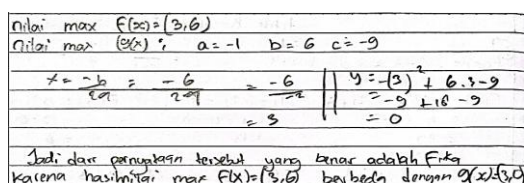 nilai max f(x) = (3,6)
nilai max g(x) : a = -1 b = 6 c = -9
x = -b/2a = -6/2.-1 = -6/-2 || y = -(3)² + 6.3 - 9
= 3 = -9 + 18 - 9
= 0
Jadi dari pernyataan tersebut yang benar adalah Fika
karena hasil nilai max f(x) = (3,6) berbeda dengan g(x) = (3,0)